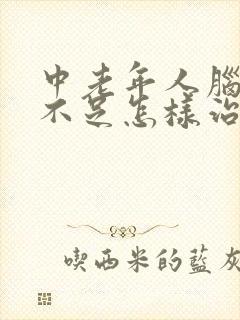 中老年人腦
不足怎樣治
喫西米的藍灰